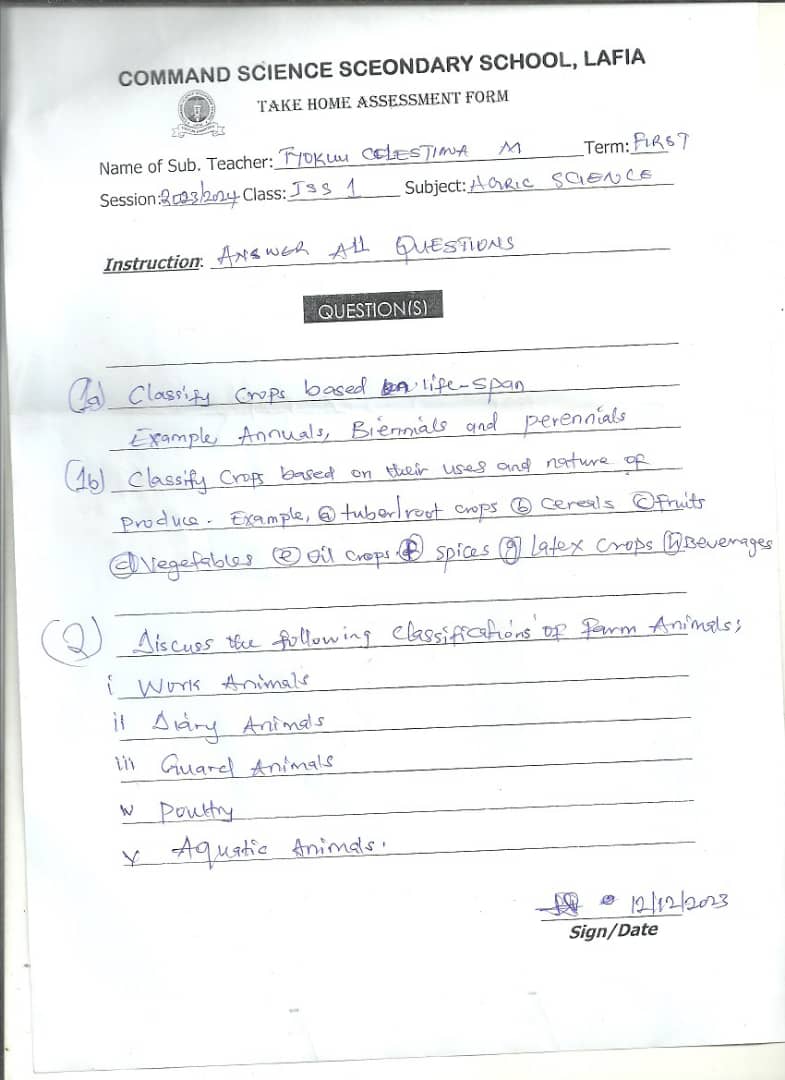 COMMAND SCIENCE SCEONDARY SCHOOL, LAFIA
TAKE HOME ASSESSMENT FORM
Name of Sub. Teacher: CELESTINA M Term: FIRST
Session: 2023/2024 Class: JSS 1 Subject: AGRIC SCIENCE
Instruction: ANSWER All QUESTIONS
QUESTION(S)
(1a) Classify Crops based on life-span
Example, Annuals, Biennials and perennials
(1b) Classify Crops based on their uses and nature of
produce. Example, (a) tuber/root crops (b) Cereals (c) Fruits
(d) Vegetables (e) Oil Crops (f) spices (g) latex Crops (h) Beverages
(2) Discuss the following Classifications of Farm Animals;
i Work Animals
ii Diary Animals
iii Guard Animals
iv Poultry
v Aquatic Animals.
12/12/2023
Sign/Date